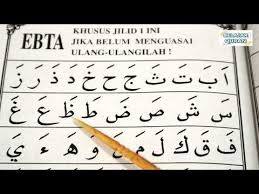 EBTA
KHUSUS JILID I INI
JIKA BELUM MENGUASAI
ULANG-ULANGILAH !
اَ بَ تَ ثَ جَ حَ خَ دَ ذَ رَ زَ
سَ شَ صَ ضَ طَ ظَ عَ غَ
فَ قَ كَ لَ مَ نَ وَ هَ ءَ يَ